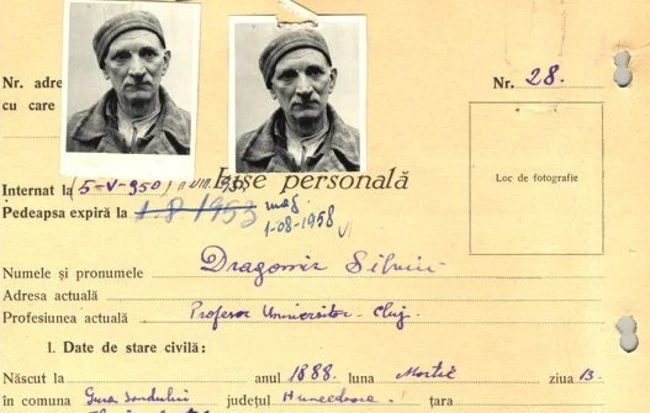 Nr. adre
Nr. 28.
cu care
Fișe personală
Loc de fotografie
Internat la (5-V-950)
Pedeapsa expiră la 1.8.1953 maj.
1-08-1958
Numele și pronumele Dragomir Silviu
Adresa actuală
Profesiunea actuală Profesor Universitar. Cluj.
I. Date de stare civilă:
Născut la anul 1888 luna Martie ziua 13.
în comuna Gura sandului județul Hunedoara. țara